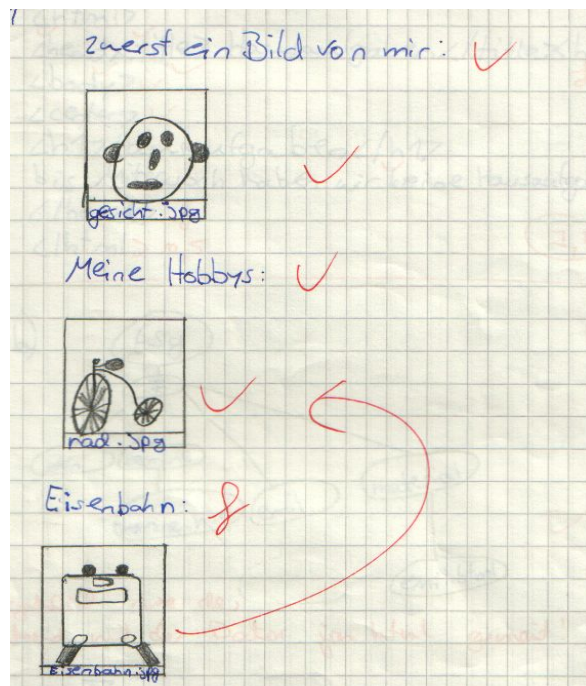 Zuerst ein Bild von mir:
gesicht.jpg
Meine Hobbys:
rad.jpg
Eisenbahn: f
Eisenbahn.jpg